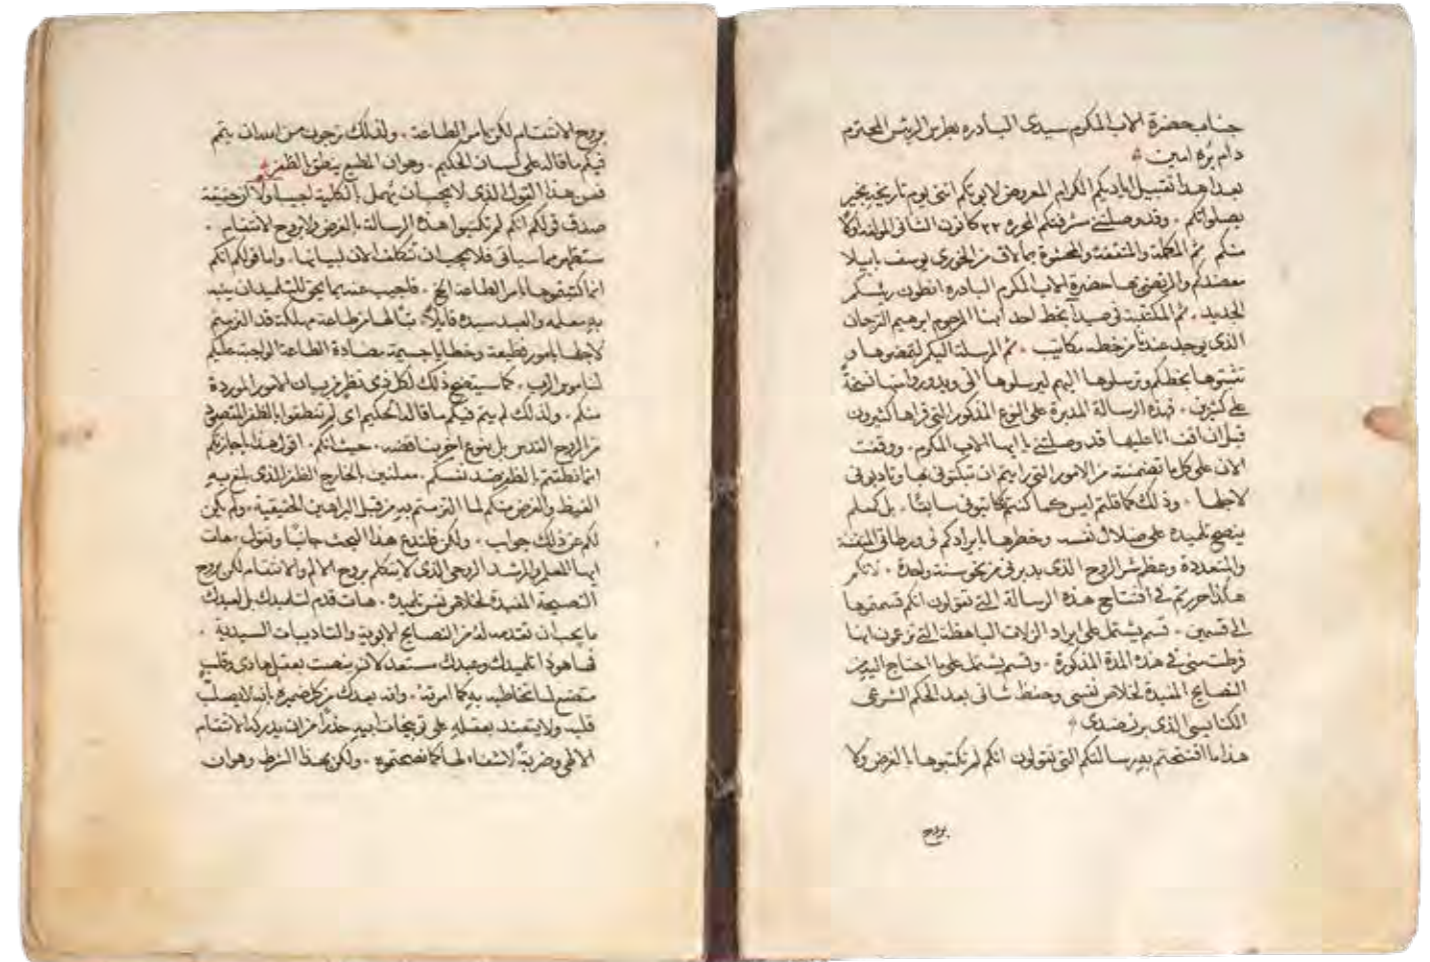 جناب حضرة الاب المكرم سيدى البادره بطرس الريس المحترم
دام بره امين
بعد اهدا تقبيل اياديكم الكرام المعروض لابوتكم انني يوم تاريخه بخير
بصلواتكم وقد وصلتني شرفتكم المحرره ٢٣ كانون الثاني المولفه اولا
منكم ثم المكملة والمتقفة والمحشوة من الخوري يوسف بابيلا
معضدكم والمرتضى بها حضرة الاب المكرم البادره انطون ريسكم
الجديد ثم المكتتبة في صيدا بخط احد ابنا المرحوم ابرهيم الترجمان
الذي يوجد عندنا من خطه مكاتيب ثم المرسلة اليكم لتمضوها و
تختموها بختمكم وترسلوها اليهم ليرسلوها الي ويدوروا بها نسخة
على كثيرين فهذه الرسالة المدبرة على النوع المذكور التي قراها كثيرون
قبل ان اقف انا عليها قد وصلتني يا ايها الاب المكرم ووقفت
الان على كل ما تضمنته من الامور التي رايتم ان تبكتوني بها وتادبوني
لاجلها وذلك كما قلتم ليس كما كنتم تكاتبوني سابقا بل كمعلم
ينصح تلميذه على ضلال نفسه وخطرها بايرادكم لي ورطاتي المتفننة
والمتعددة وعظم شر الروح الذي يدبرني من نحو سنة واحدة لانكم
هكذا حررتم في افتتاح هذه الرسالة التي تقولون انكم قسمتوها
الى قسمين قسم يشتمل على ايراد الزلات الباهظة التي تزعمون انها
فرطت مني في هذه المدة المذكورة وقسم يشتمل على ما احتاج اليه من
النصايح المفيدة لخلاص نفسي وحفظ شاني بعد الحكم الشرعي
الكنايسي الذي برز ضدي
هذا ما افتتحتم به رسالتكم التي تقولون انكم لم تكتبوها بالغرض ولا
بروح
بروح الانتقام لكن بامر الطاعة ولذلك ترجون من الله ان يتم
فيكم ما قاله على لسان الحكيم وهو ان المطيع ينطق بالظفر
فمن هذا القول الذي لا يجب ان يهمل بالكلية نجيب اولا ان حقيقة
صدق قولكم انكم لم تكتبوا هذه الرسالة بالغرض ولا بروح الانتقام
ستظهر مما سياتي فلا يجب ان نتكلف الان لبيانها واما قولكم انكم
انما كتبتموها بامر الطاعة الخ فنجيب عنه بما يحق للتلميذ ان ينبه
به معلمه والعبد سيده قايلا تبا لها من طاعة مهلكة قد التزمتم
لاجلها بامور فظيعة وخطايا جسيمة مضادة الطاعة الواجبة عليكم
لناموس الرب كما سيتضح ذلك لكل ذي نظر من بيان الامور الموردة
منكم ولذلك لم يتم فيكم ما قاله الحكيم اي لم تنطقوا بالظفر المقصود
من الروح القدس بل بنوع اخر يناقضه حيث انكم اقول هذا باجازتكم
انما نطقتم بالظفر ضد نفسكم معلنين بالخارج الظفر الذي بلغ به
الغيظ والغرض منكم لما التزمتم به من قبل البراهين الحقيقية ولم يكن
لكم عن ذلك جواب ولكن فلندع هذا البحث جانبا ونقول هات
ايها المعلم والمرشد الروحي الذي لا يتكلم بروح الالم والانتقام لكن بروح
النصيحة المفيدة لخلاص نفس تلميذه هات قدم لتلميذك بل لعبدك
ما يجب ان تقدمه له من النصايح الابوية والتاديبات السيدية
فها هوذا تلميذك وعبدك مستعد لان ينصت بعقل هادي وقلب
متضع لما تخاطبه به كما امرته وانه يعدك من كل ضميره بانه لا يصلب
قلبه ولا يتعند بعقله على توبيخات ابيه حذرا من ان يدركه الانتقام
الالهي وضربة لا شفاء لها كما نصحتموه ولكن بهذا الشرط وهو ان